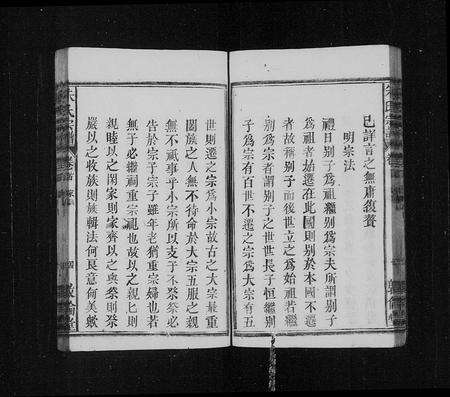 已詳言之無庸復贅
明宗法
禮曰別子爲祖繼別爲宗夫所謂別子
爲祖者始遷在此國則別於本國不遷
者故稱別子而後世立之爲始祖者繼
別爲宗者謂別子之世世長子恒繼別
子爲宗有百世不遷之宗爲大宗有五
世則遷之宗爲小宗故古之大宗最重
闔族之人無不待命於大宗五服之親
無不承事乎小宗所以支子不祭祭必
告於宗子宗子雖年老猶重宗婦也若
無子必繼祠重宗祀也故以之親上則
親睦以之閑家則家齊以之奠祭則祭
嚴以之收族則族輯法何良意何美歟